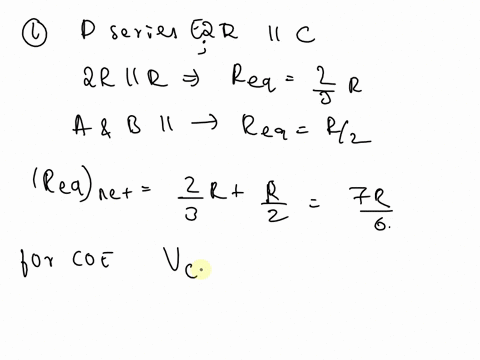 (c) D series E 2R || C
;
2R || R ⇒ Req = 2/3 R
A & B || → Req = R/2
(Req)net = 2/3 R + R/2 = 7R/6.
for COE Vc.